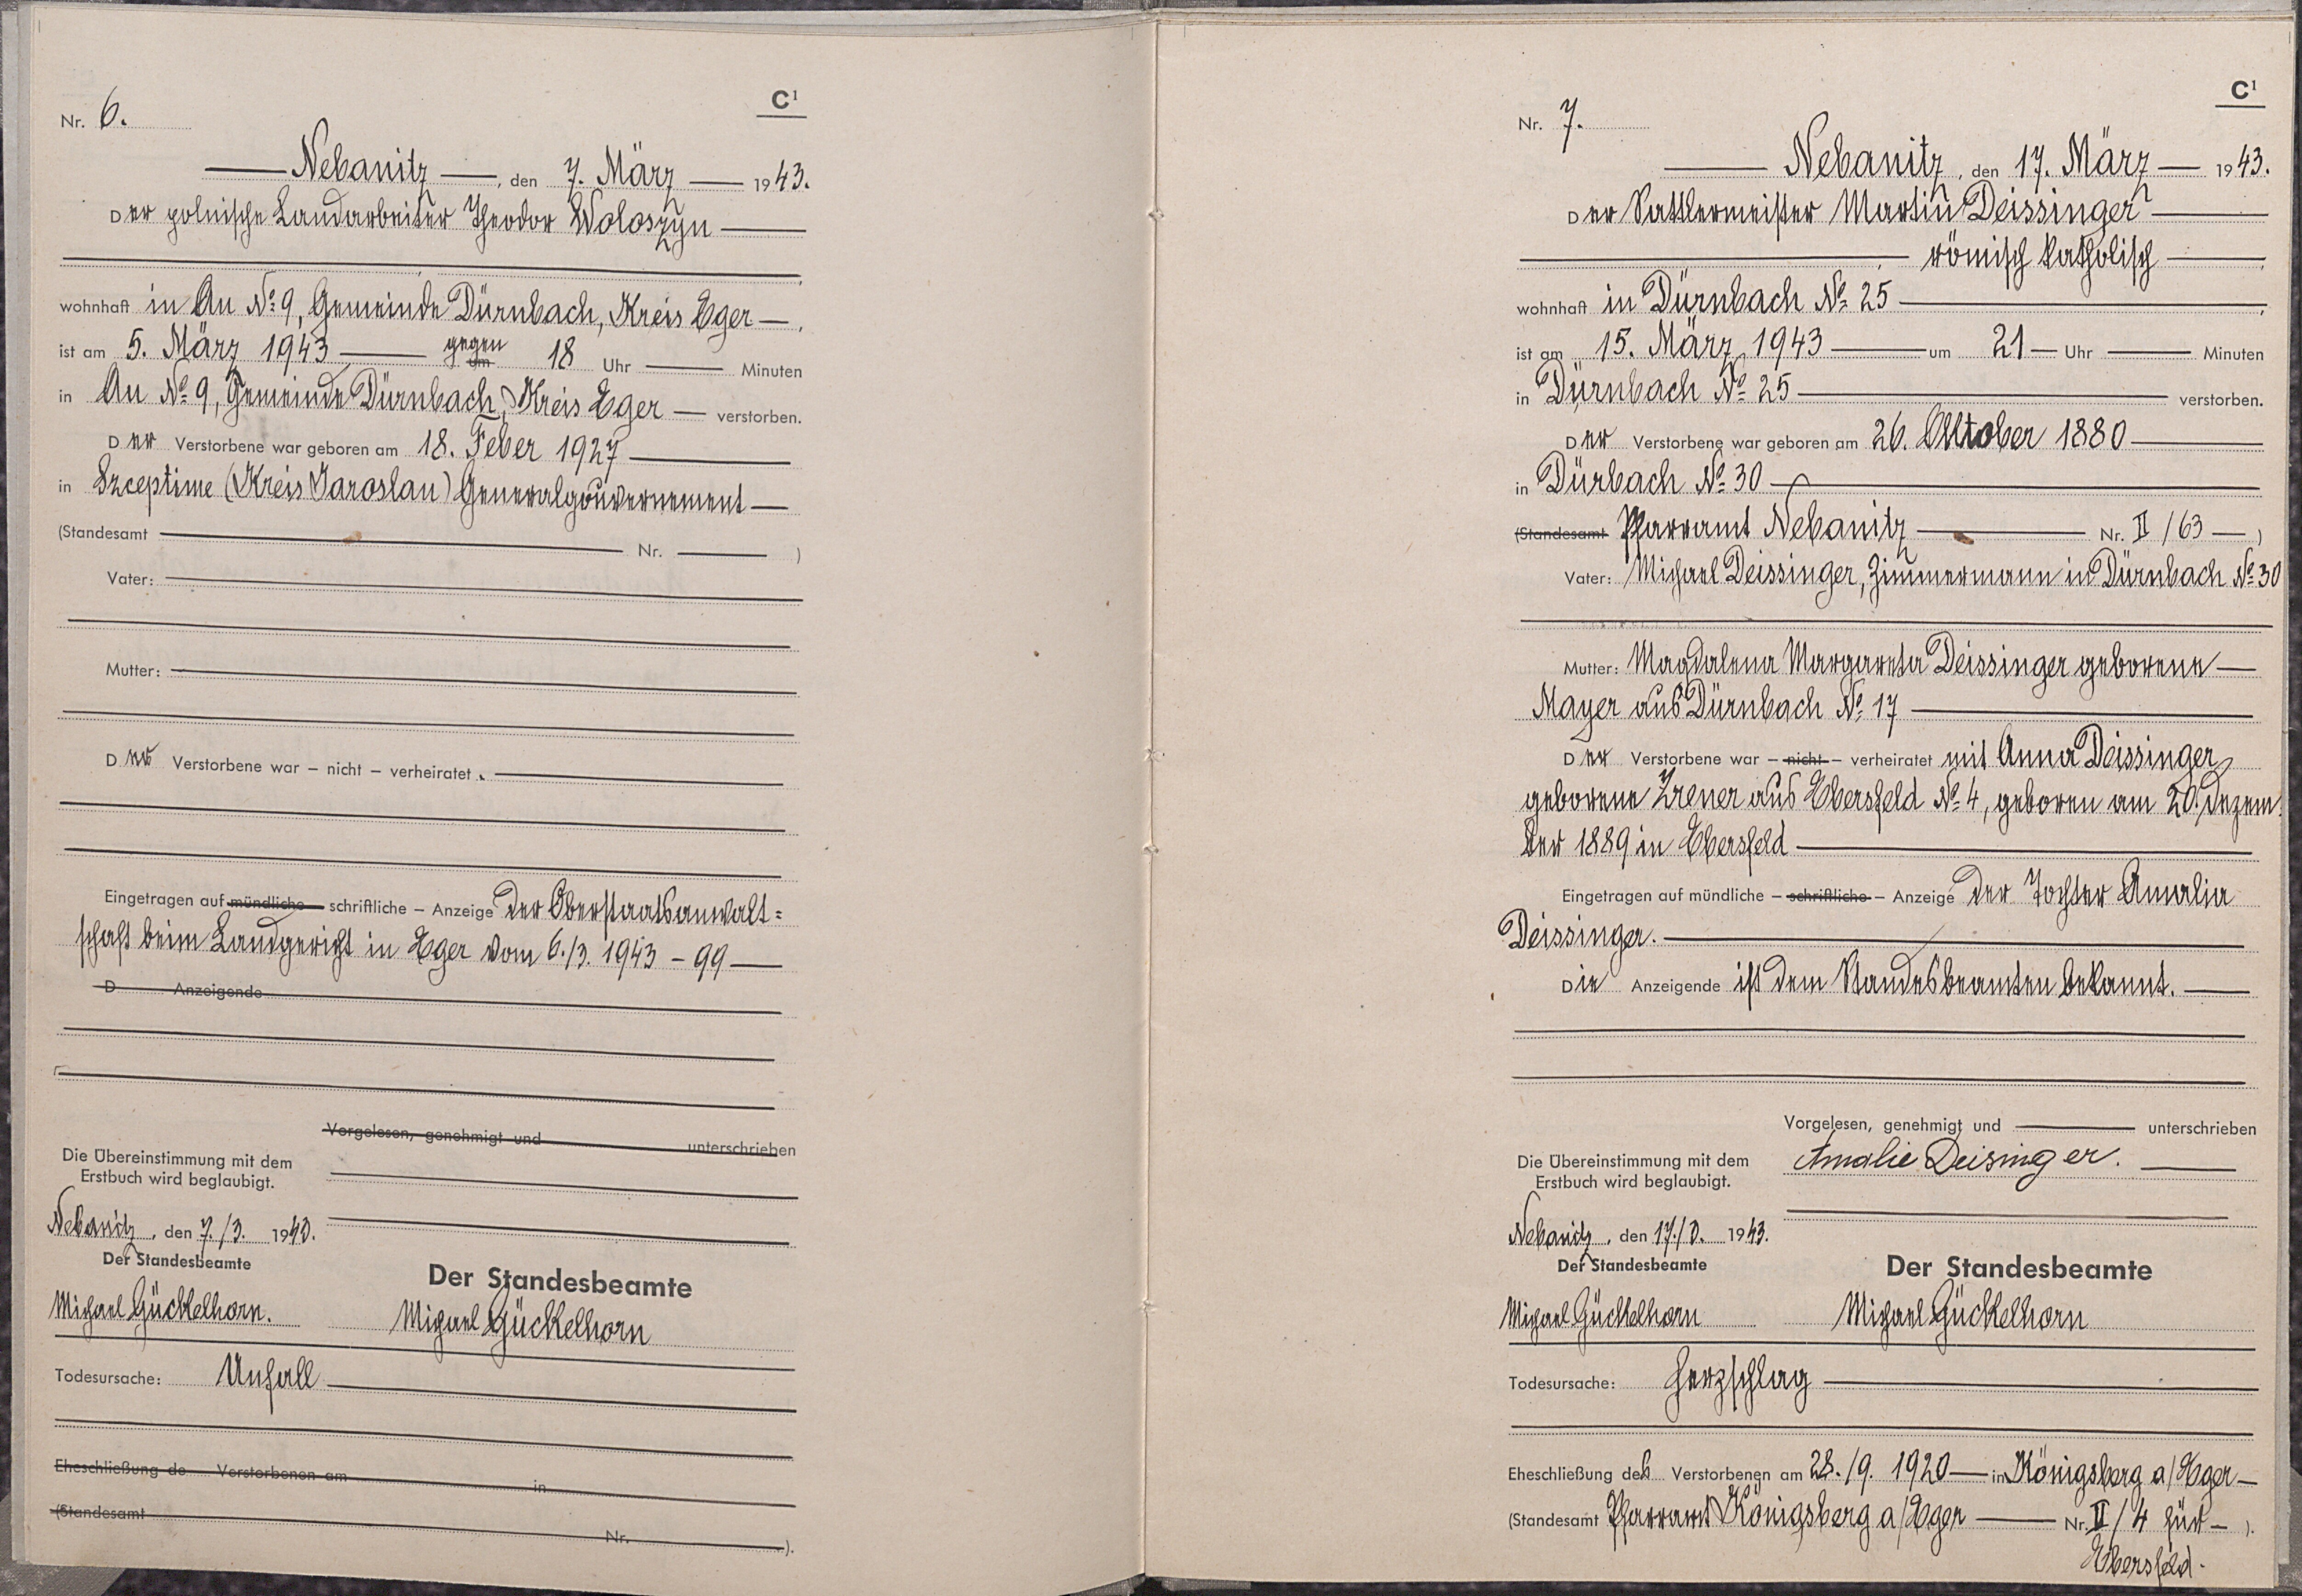 C¹
Nr. 6.
Nebanitz, den 7. März 1943.
Der polnische Landarbeiter Theodor Woloszyn
wohnhaft in Au № 9, Gemeinde Dürnbach, Kreis Eger,
ist am 5. März 1943 gegen um 18 Uhr Minuten
in Au № 9, Gemeinde Dürnbach, Kreis Eger verstorben.
Der Verstorbene war geboren am 18. Feber 1927
in Szceptime (Kreis Jaroslau) Generalgouvernement
(Standesamt Nr. )
Vater:
Mutter:
Der Verstorbene war – nicht – verheiratet.
Eingetragen auf mündliche – schriftliche – Anzeige der Oberstaatsanwalt=
schaft beim Landgericht in Eger vom 6./3. 1943 – 99
D Anzeigende
Vorgelesen, genehmigt und unterschrieben
Die Übereinstimmung mit dem
Erstbuch wird beglaubigt.
Nebanitz, den 7./3. 1943.
Der Standesbeamte
Der Standesbeamte
Michael Gückelhorn.
Michael Gückelhorn
Todesursache: Unfall
Eheschließung de Verstorbenen am in
(Standesamt Nr. ).
C¹
Nr. 7.
Nebanitz, den 17. März 1943.
Der Sattlermeister Martin Deissinger
römisch katholisch,
wohnhaft in Dürnbach № 25,
ist am 15. März 1943 um 21 Uhr Minuten
in Dürnbach № 25 verstorben.
Der Verstorbene war geboren am 26. Oktober 1880
in Dürbach № 30
(Standesamt Pfarramt Nebanitz Nr. II/63)
Vater: Michael Deissinger, Zimmermann in Dürnbach № 30
Mutter: Magdalena Margareta Deissinger geborene
Mayer aus Dürnbach № 17
Der Verstorbene war – nicht – verheiratet mit Anna Deissinger
geborene Zrener aus Ebersfeld № 4, geboren am 20. Dezem:
ber 1889 in Ebersfeld
Eingetragen auf mündliche – schriftliche – Anzeige der Tochter Amalia
Deissinger.
Die Anzeigende ist dem Standesbeamten bekannt.
Vorgelesen, genehmigt und unterschrieben
Die Übereinstimmung mit dem
Erstbuch wird beglaubigt.
Amalie Deisinger.
Nebanitz, den 17./3. 1943.
Der Standesbeamte
Der Standesbeamte
Michael Gückelhorn
Michael Gückelhorn
Todesursache: Herzschlag
Eheschließung des Verstorbenen am 28./9. 1920 in Königsberg a/Eger
(Standesamt Pfarramt Königsberg a/Eger Nr. II/4 für ).
Ebersfeld.